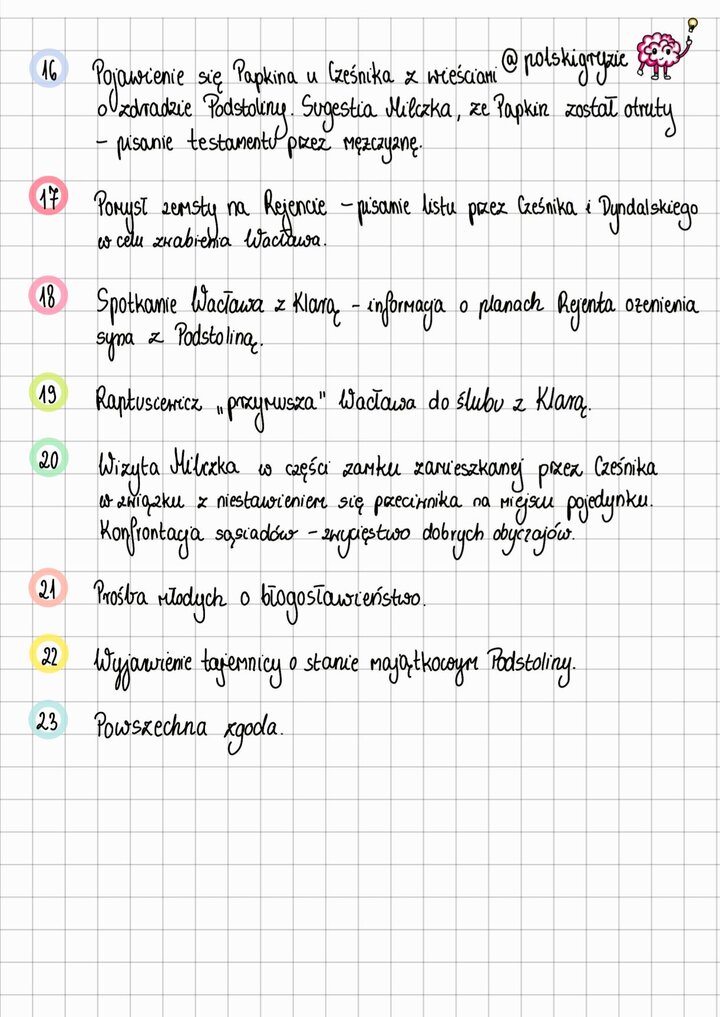 @polskigryzie
16 Pojawienie się Papkina u Cześnika z wieściami
o zdradzie Podstoliny. Sugestia Milczka, że Papkin został otruty
– pisanie testamentu przez mężczyznę.
17 Pomysł zemsty na Rejencie – pisanie listu przez Cześnika i Dyndalskiego
w celu zwabienia Wacława.
18 Spotkanie Wacława z Klarą – informacja o planach Rejenta ożenienia
syna z Podstoliną.
19 Raptusiewicz „przymusza" Wacława do ślubu z Klarą.
20 Wizyta Milczka w części zamku zamieszkanej przez Cześnika
w związku z niestawieniem się przeciwnika na miejscu pojedynku.
Konfrontacja sąsiadów – zwycięstwo dobrych obyczajów.
21 Prośba młodych o błogosławieństwo.
22 Wyjawienie tajemnicy o stanie majątkowym Podstoliny.
23 Powszechna zgoda.